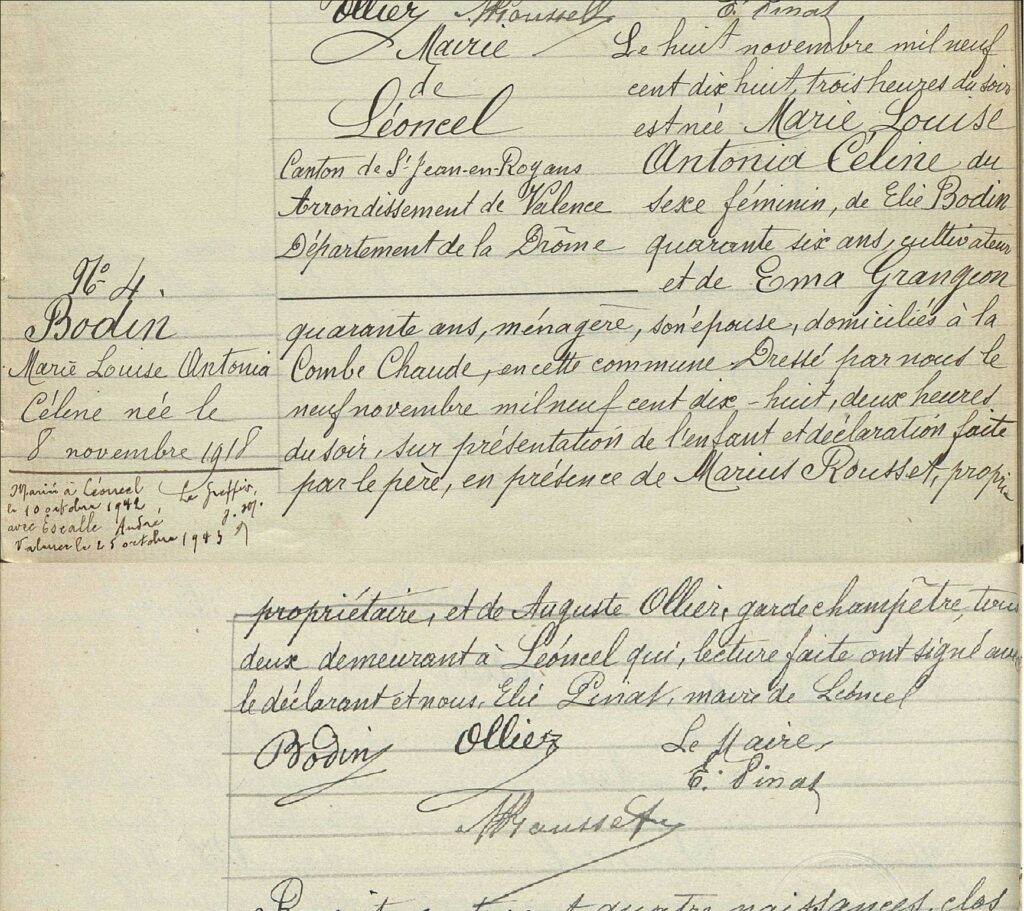 Ollier MRousset E. Pinat
Mairie
de
Léoncel
Canton de St Jean-en-Royans
Arrondissement de Valence
Département de la Drôme
Le huit novembre mil neuf
cent dix huit, trois heures du soir
est née Marie Louise
Antonia Céline du
sexe féminin, de Elie Bodin
quarante six ans, cultivateur
et de Ema Grangeon
No 4.
Bodin
Marie Louise Antonia
Céline née le
8 novembre 1918
Marié à Léoncel
le 10 octobre 1942
avec Escalle André
Valence le 25 octobre 1943
Le Greffier,
quarante ans, ménagère, son épouse, domiciliés à la
Combe Chaude, en cette commune Dressé par nous le
neuf novembre mil neuf cent dix-huit, deux heures
du soir, sur présentation de l'enfant et déclaration faite
par le père, en présence de Marius Rousset, propri
propriétaire, et de Auguste Ollier, garde champêtre, tous
deux demeurant à Léoncel qui, lecture faite ont signé avec
le déclarant et nous, Elie Pinat, maire de Léoncel
Bodin Ollier Le Maire,
E. Pinat
MRousset
quatre naissances, clos